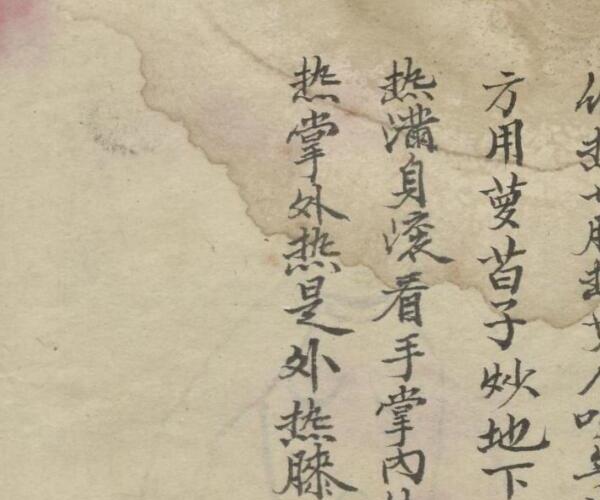 方用萝苩子炒地下
热满身滚看手掌内
热掌外热是外热膝